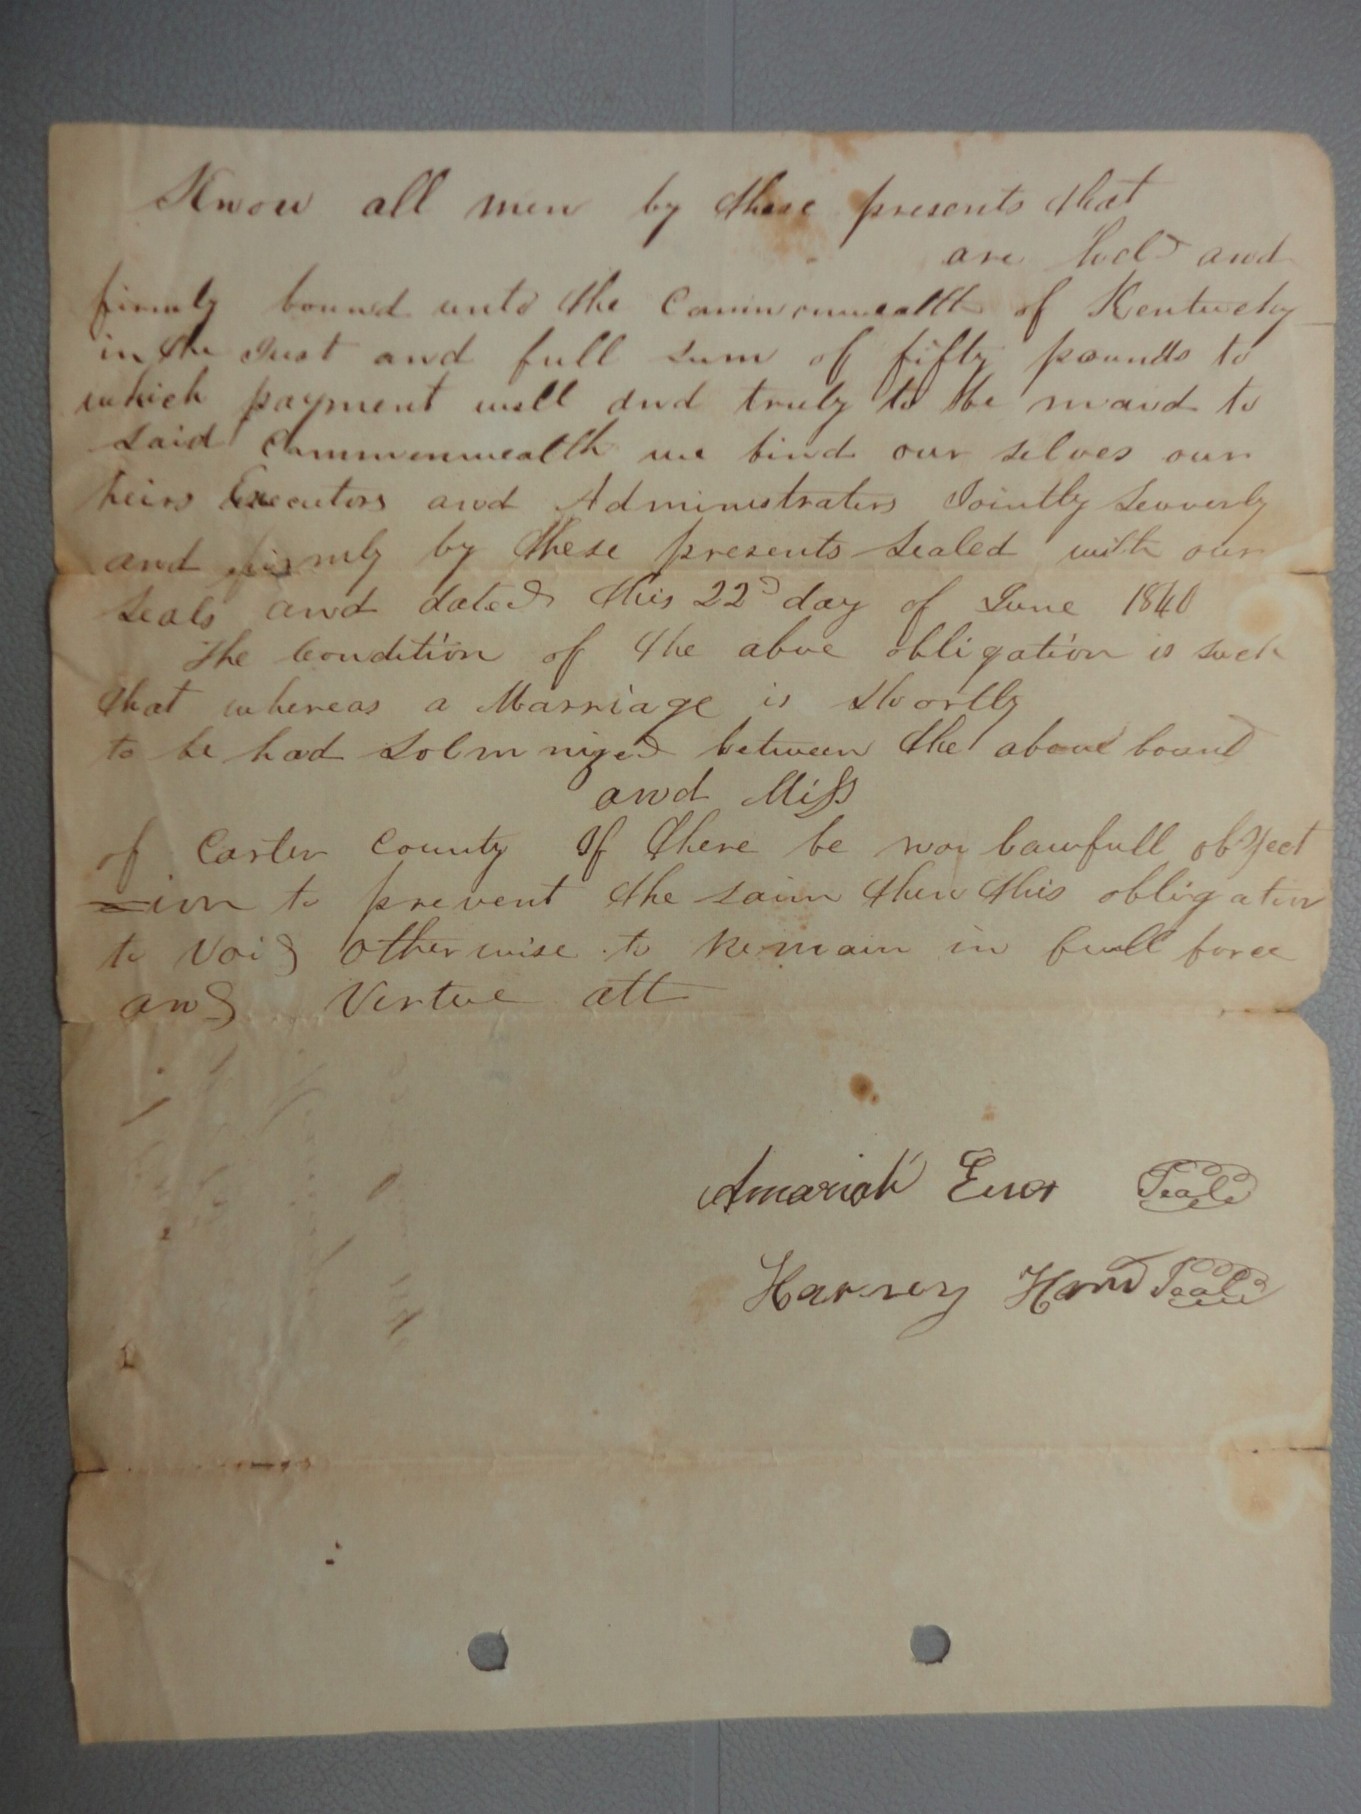 Know all men by these presents that
are held and
firmly bound unto the Commonwealth of Kentucky
in the Just and full sum of fifty pounds to
which payment well and truly to be maid to
said Commonwealth we bind our selves our
heirs Executors and Administrators Jointly
and firmly by these presents sealed with our
seals and dated this 22d day of June 1840
The Condition of the abve obligation is such
that whereas a Marriage is Shortly
to be had between the above bound
and Miss
of Carter County If there be no lawfull object
=ion to prevent the saim then this obligation
to Void otherwise to Remain in full force
and Vertue att
Amariah Seal
Harvey Seal